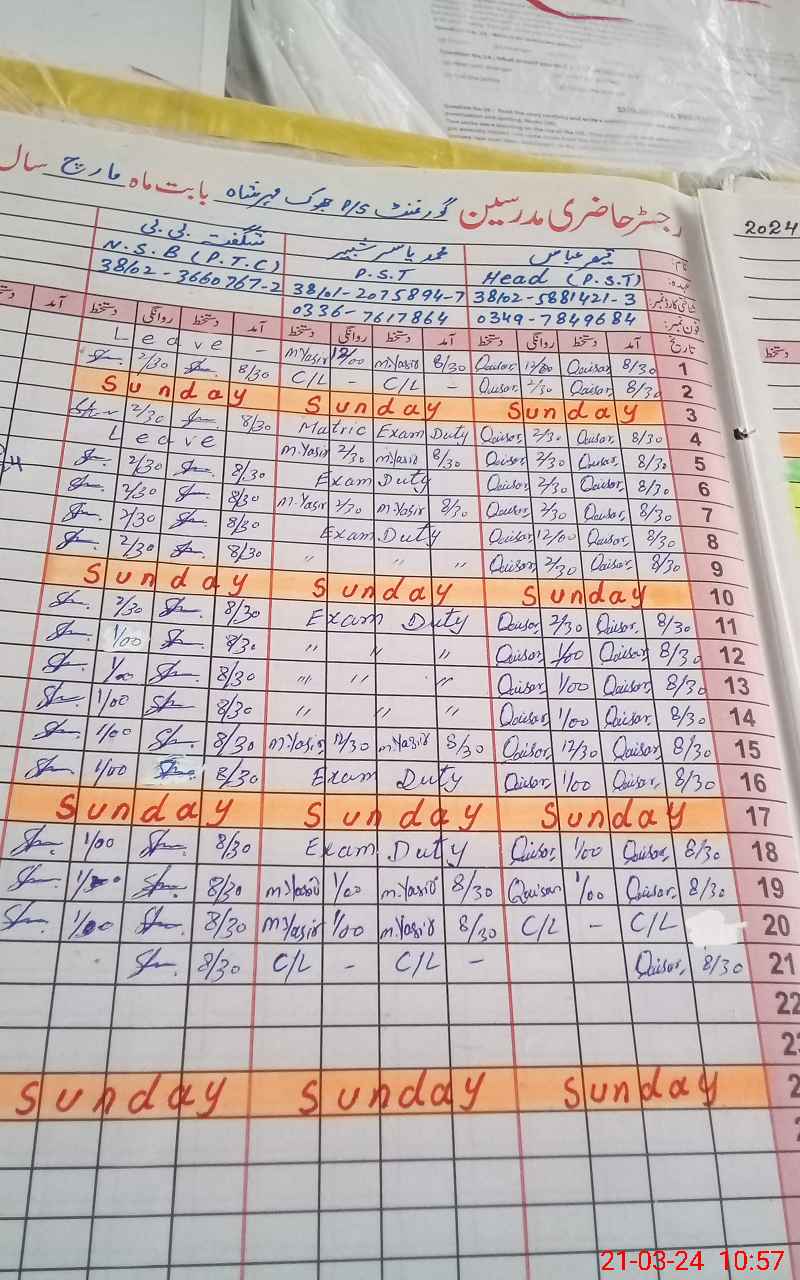 رجسٹر حاضری مدرسین گورنمنٹ P/S جوک میر شاہ بابت ماہ مارچ سال
2024
نام: قیصر عباس محمد یاسر شبیر شگفتہ بی بی
عہدہ: Head (P.S.T) P.S.T N.S.B (P.T.C)
شناختی کارڈ نمبر: 38102-5881421-3 38101-2075894-7 38102-3660767-2
فون نمبر: 0349-7849684 0336-7617864
تاریخ آمد دستخط روانگی دستخط آمد دستخط روانگی دستخط آمد دستخط روانگی دستخط آمد دستخط
1 8/30 Qaisar, 12/00 Qaisar, 8/30 M.Yasir 12/00 M.Yasir - Leave
2 8/30 Qaisar, 2/30 Qaisar, - C/L - C/L 8/30 2/30
3 Sunday Sunday Sunday
4 8/30 Qaisar, 2/30 Qaisar, Matric Exam Duty 8/30 2/30
5 8/30 Qaisar, 2/30 Qaisar, 8/30 M.Yasir 2/30 M.Yasir Leave
6 8/30 Qaisar, 2/30 Qaisar, Exam Duty 8/30 2/30
7 8/30 Qaisar, 2/30 Qaisar, 8/30 M.Yasir 2/30 M.Yasir 8/30 2/30
8 8/30 Qaisar, 12/00 Qaisar, Exam Duty 8/30 2/30
9 8/30 Qaisar, 2/30 Qaisar, " " " 8/30 2/30
10 Sunday Sunday Sunday
11 8/30 Qaisar, 2/30 Qaisar, Exam Duty 8/30 2/30
12 8/30 Qaisar, 1/00 Qaisar, " " " 8/30 1/00
13 8/30 Qaisar, 1/00 Qaisar, " " " 8/30 1/00
14 8/30 Qaisar, 1/00 Qaisar, " " " 8/30 1/00
15 8/30 Qaisar, 12/30 Qaisar, 8/30 M.Yasir 12/30 M.Yasir 8/30 1/00
16 8/30 Qaisar, 1/00 Qaisar, Exam Duty 8/30 1/00
17 Sunday Sunday Sunday
18 8/30 Qaisar, 1/00 Qaisar, Exam Duty 8/30 1/00
19 8/30 Qaisar, 1/00 Qaisar 8/30 M.Yasir 1/00 M.Yasir 8/30
20 C/L - C/L 8/30 M.Yasir 1/00 M.Yasir 8/30 1/00
21 8/30 Qaisar, - C/L - C/L 8/30
22
Sunday Sunday Sunday
21-03-24 10:57